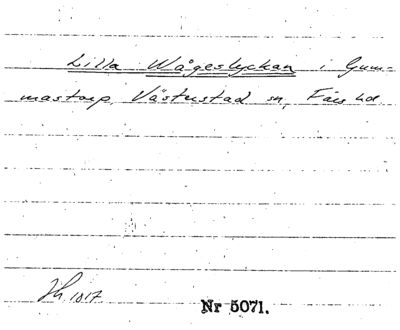 Lilla Wågeslyckan i Gum-
mastorp, Västustad sn, Färs hd.
Jh. 1017
Nr 5071.